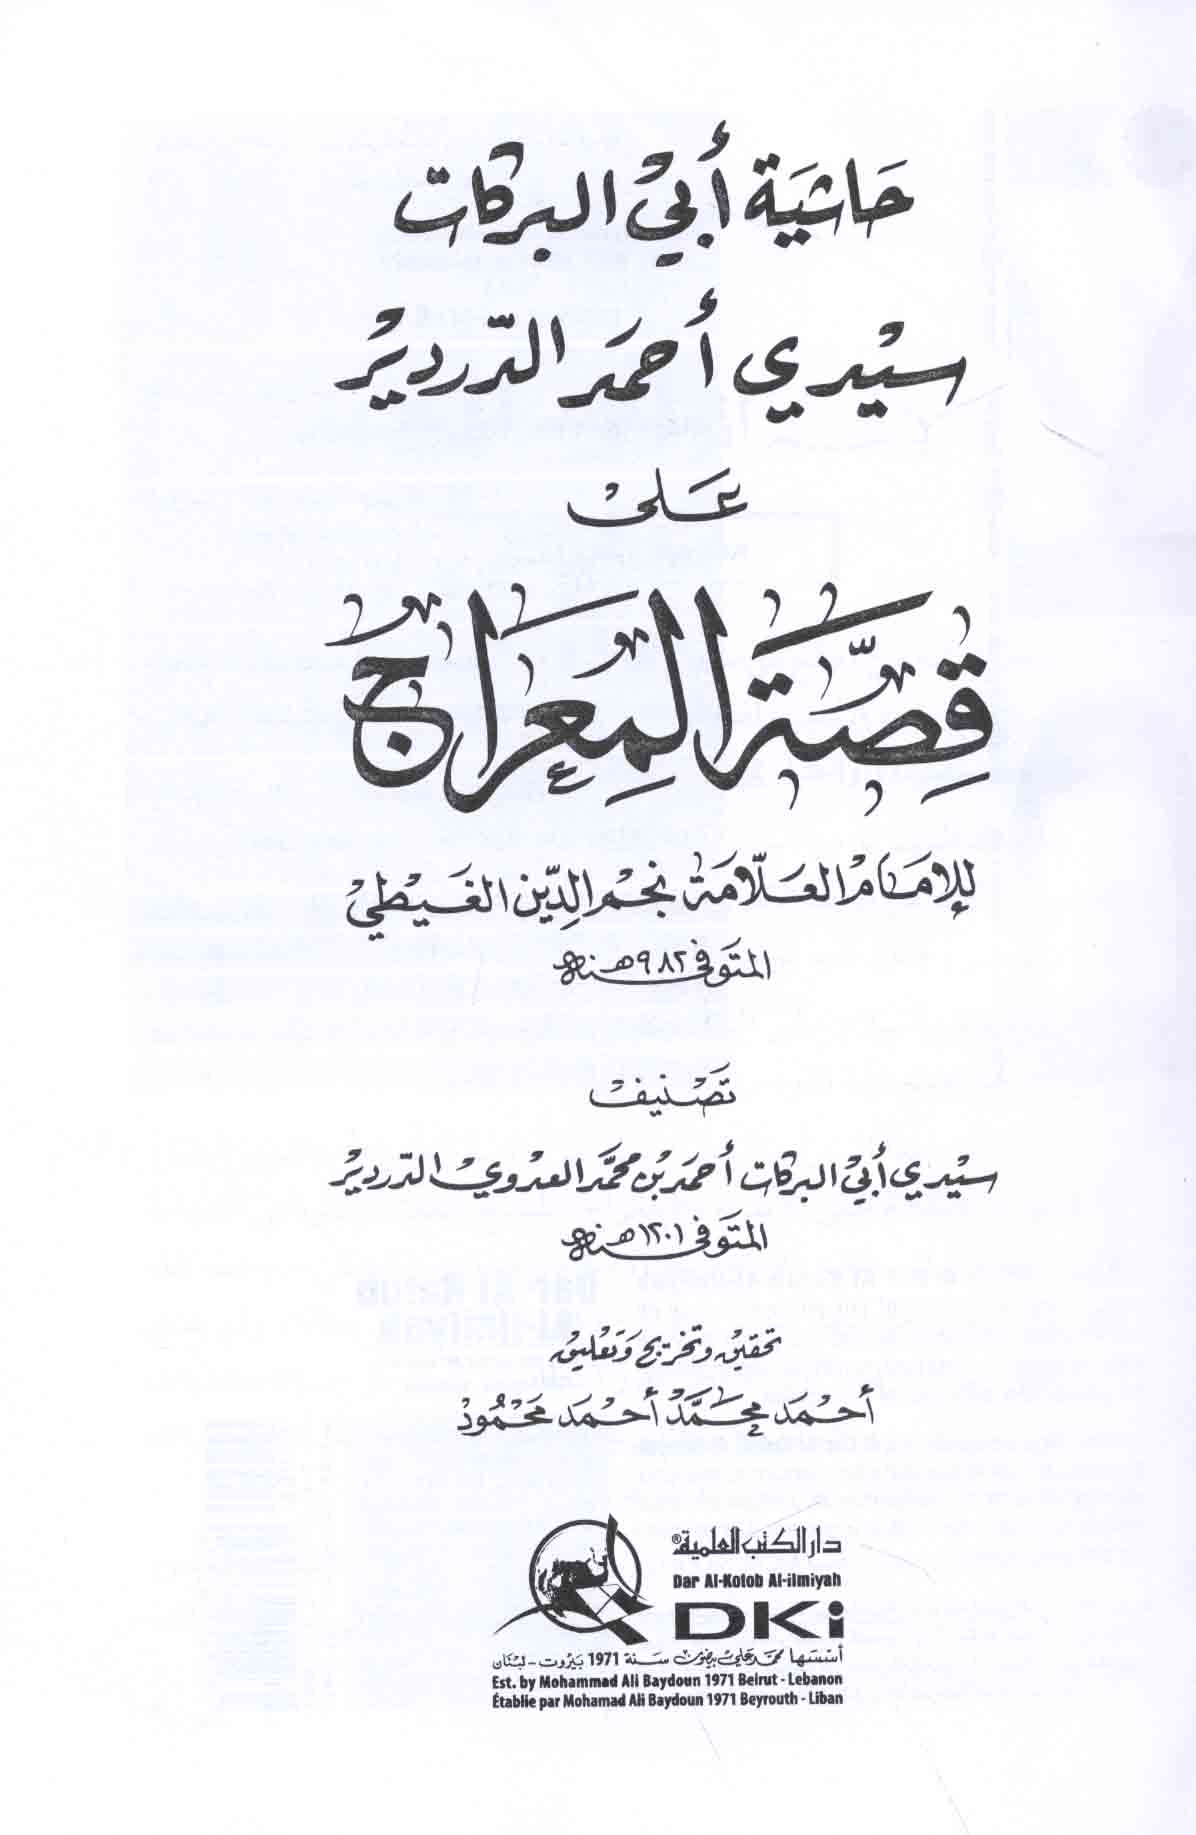 حَاشيَة أبيْ البركات
سيْدي أحمَد الدّرديْر
عَلىْ
قِصَّة المِعرَاج
للإمَامْ العَلّامَة نجمْ الدِّين الغَيْطيْ
المتَوفى ٩٨٢هـ سنة
تصَنيفْ
سيْدي أبيْ البركات أحمَد بن محمَّد العدويْ الدّرديْر
المتَوفى ١٢٠١هـ سنة
تحقيْق وتخريج وَتعْليق
أحْمَد محمَّد أحْمَد محْمُود
دار الكتب العلمية®
Dar Al-Kotob Al-ilmiyah
DKi
أسّسَها محمّد علي بيضون سَنة 1971 بَيْروت - لبْنان
Est. by Mohammad Ali Baydoun 1971 Beirut - Lebanon
Établie par Mohamad Ali Baydoun 1971 Beyrouth - Liban